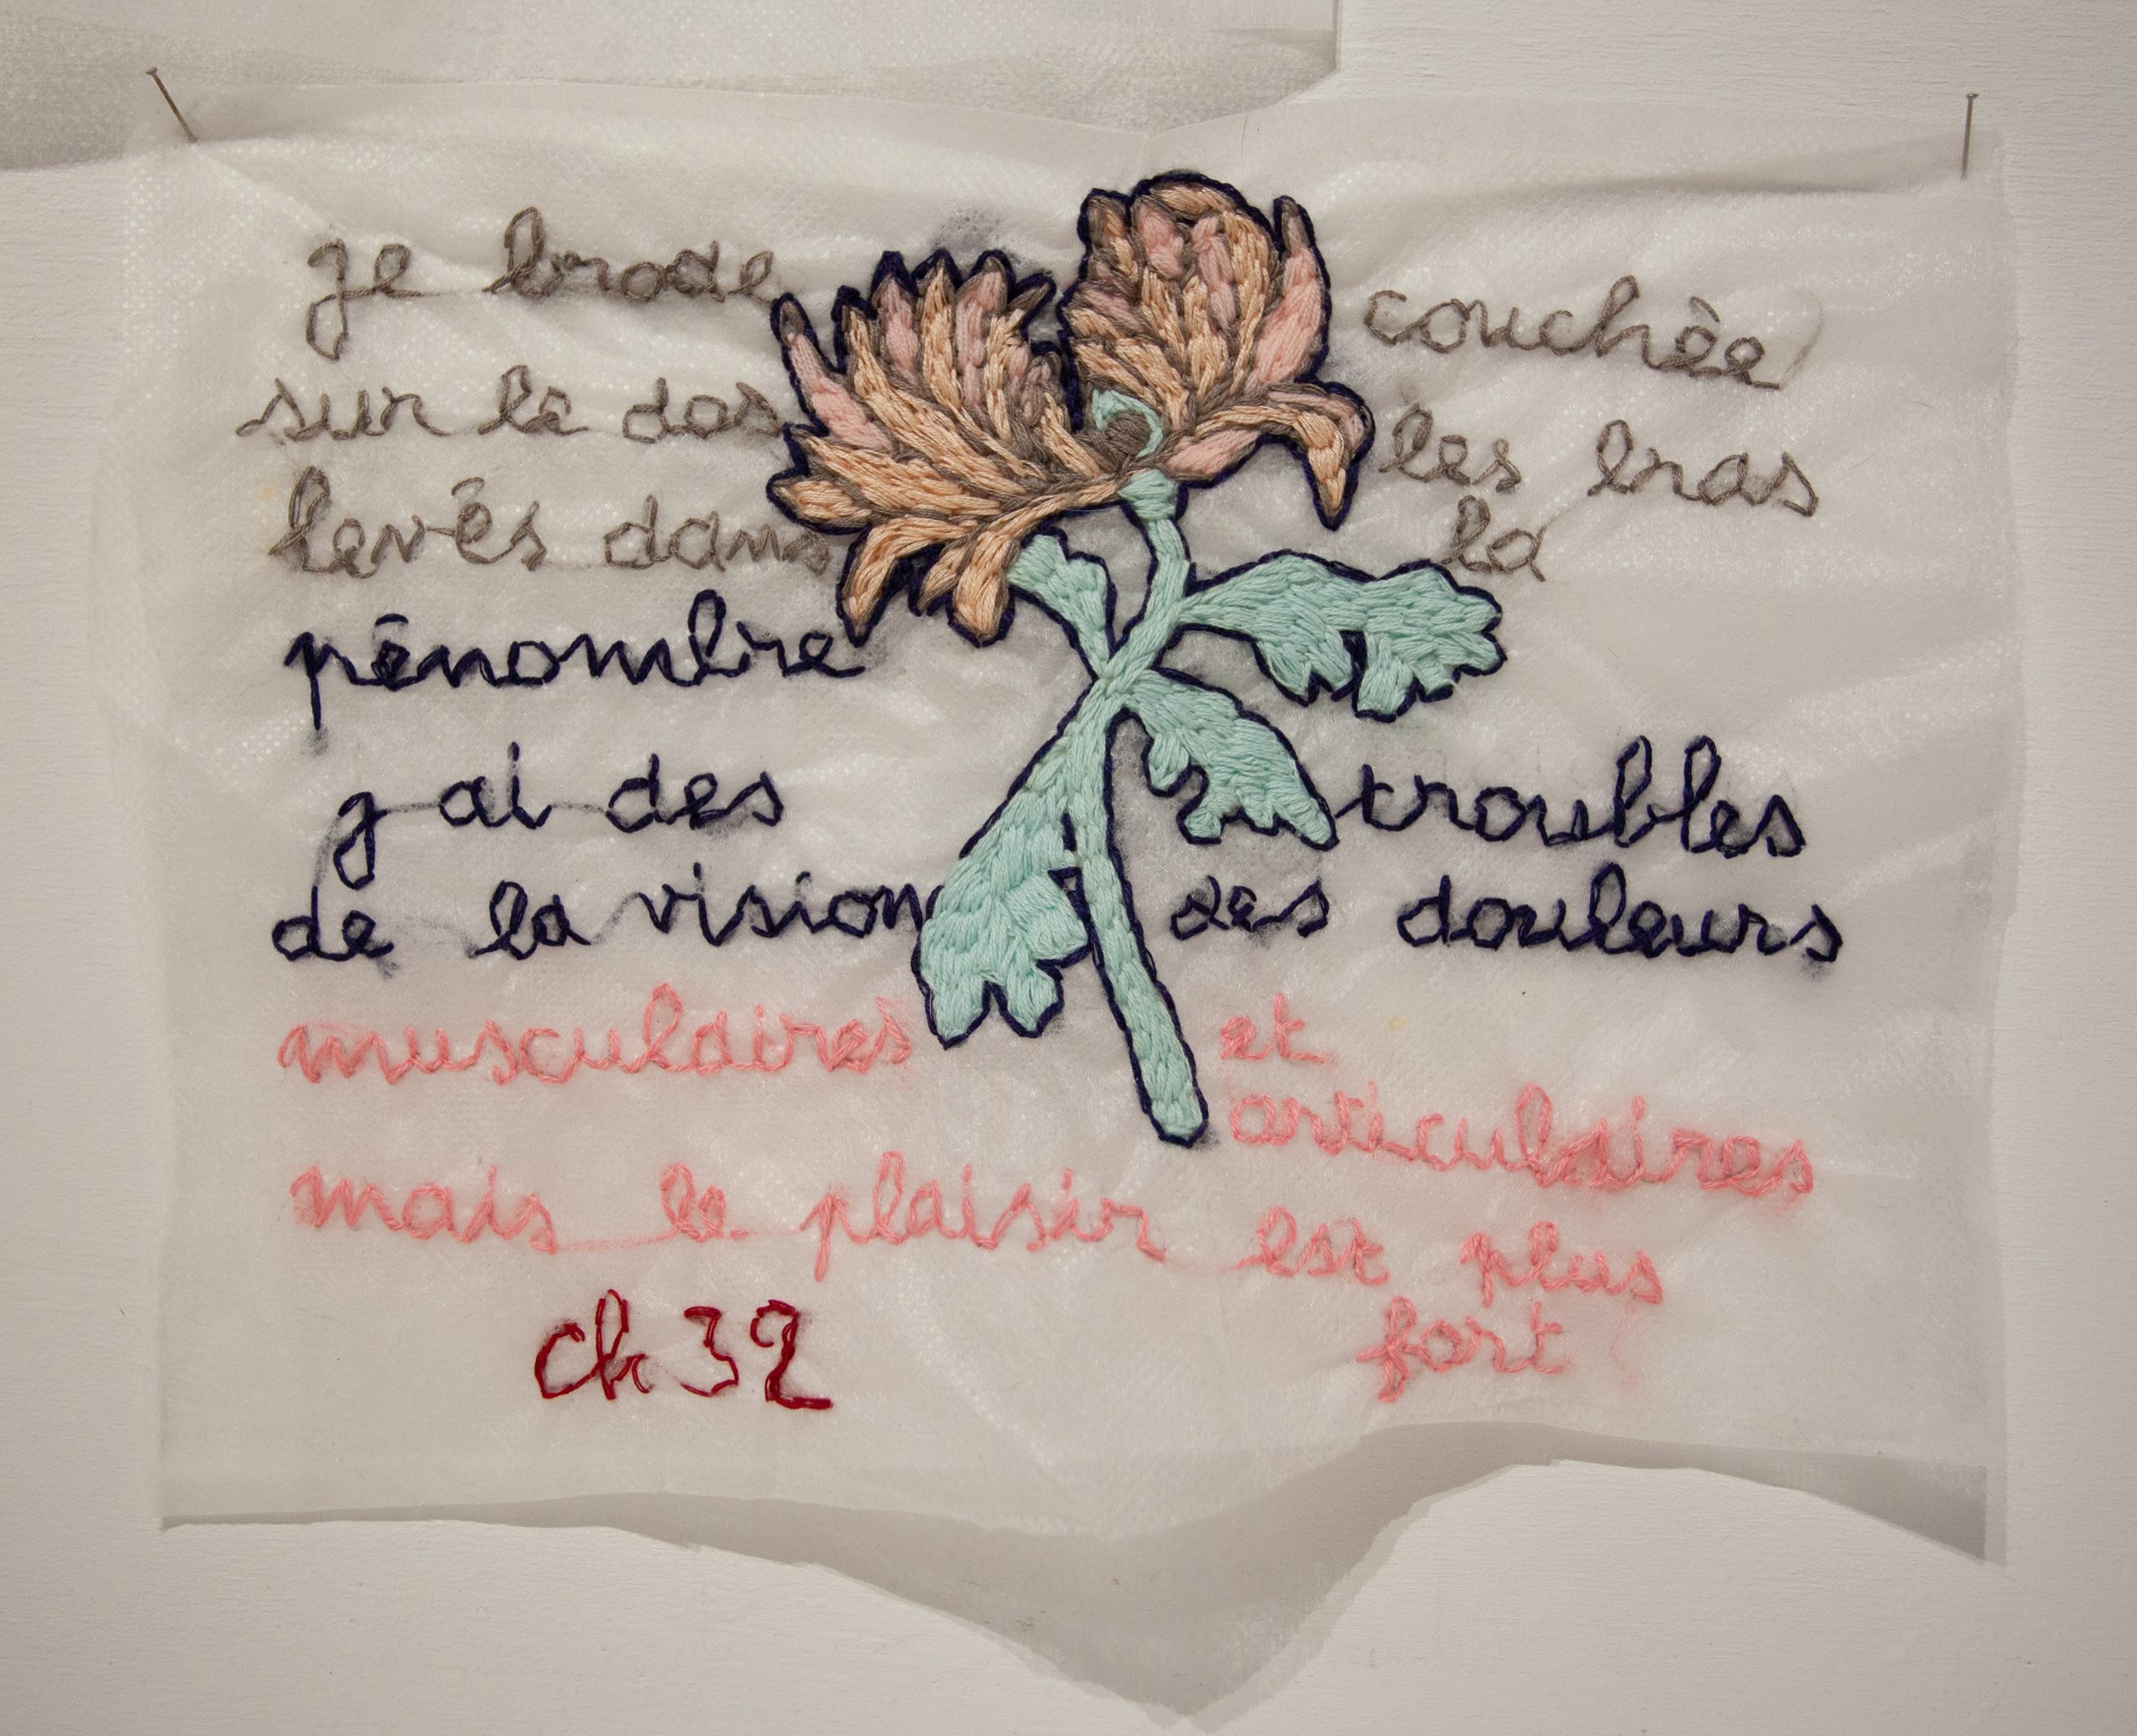 je brode couchée
sur le dos les bras
levés dans la
pénombre
j ai des troubles
de la vision des douleurs
musculaires et
articulaires
mais le plaisir est plus
fort
ch 32